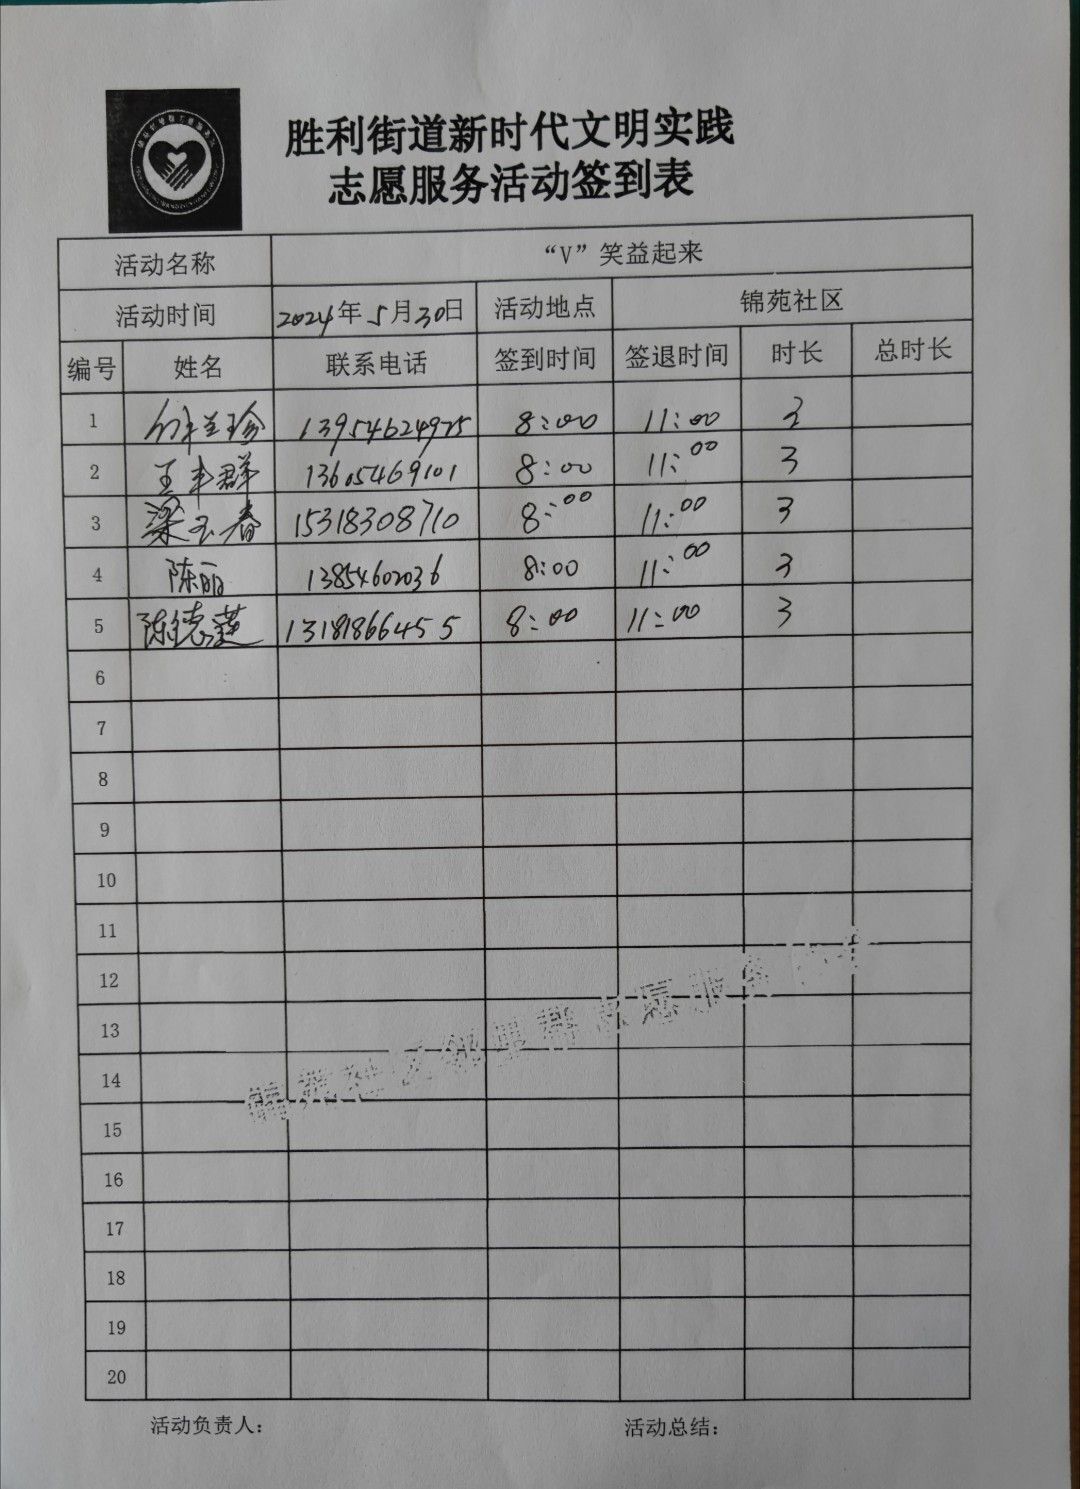 胜利街道新时代文明实践
志愿服务活动签到表
活动名称 “V”笑益起来
活动时间 2024年5月30日 活动地点 锦苑社区
编号 姓名 联系电话 签到时间 签退时间 时长 总时长
1 13954624975 8:00 11:00 3
2 王丰群 13605469101 8:00 11:00 3
3 梁玉春 15318308710 8:00 11:00 3
4 陈丽 1385460036 8:00 11:00 3
5 陈德莲 13181866455 8:00 11:00 3
6
7
8
9
10
11
12
13
14
15
16
17
18
19
20
锦苑社区邻里帮志愿服务
活动负责人: 活动总结: